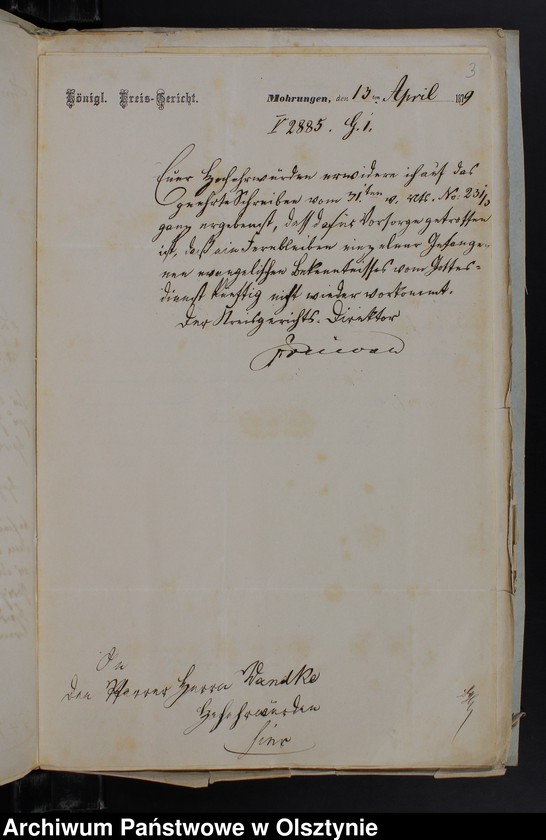 3
Königl. Kreis-Gericht.
Mohrungen, den 13ten April 1879
V 2885. G. 1.
Euer Hochehrwürden erwidere ich auf das
geehrte Schreiben vom 31.ten v. Mts. No: 231/3
ganz ergebenst, daß dafür Vorsorge getroffen
ist, daß ein Fernbleiben einzelner Gefange-
nen evangelischen Bekenntnisses vom Gottes-
dienst künftig nicht wieder vorkommt.
Der Kreisgerichts-Direktor
An
den Pfarrer Herrn Wandke
Hochehrwürden
hier
Archiwum Państwowe w Olsztynie